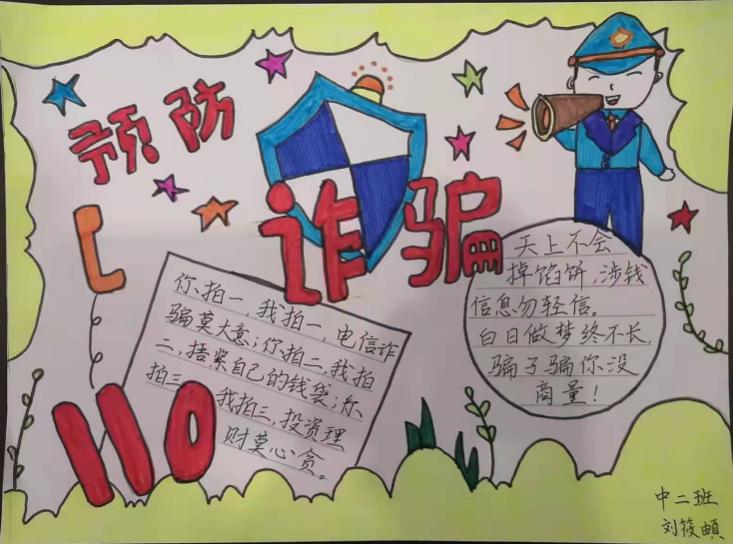 预防
诈骗
你拍一,我拍一,电信诈
骗莫大意;你拍二,我拍
二,捂紧自己的钱袋;你
拍三 我拍三,投资理
财莫心贪。
110
天上不会
掉馅饼,涉钱
信息勿轻信。
白日做梦终不长,
骗子骗你没
商量!
中二班
刘筱